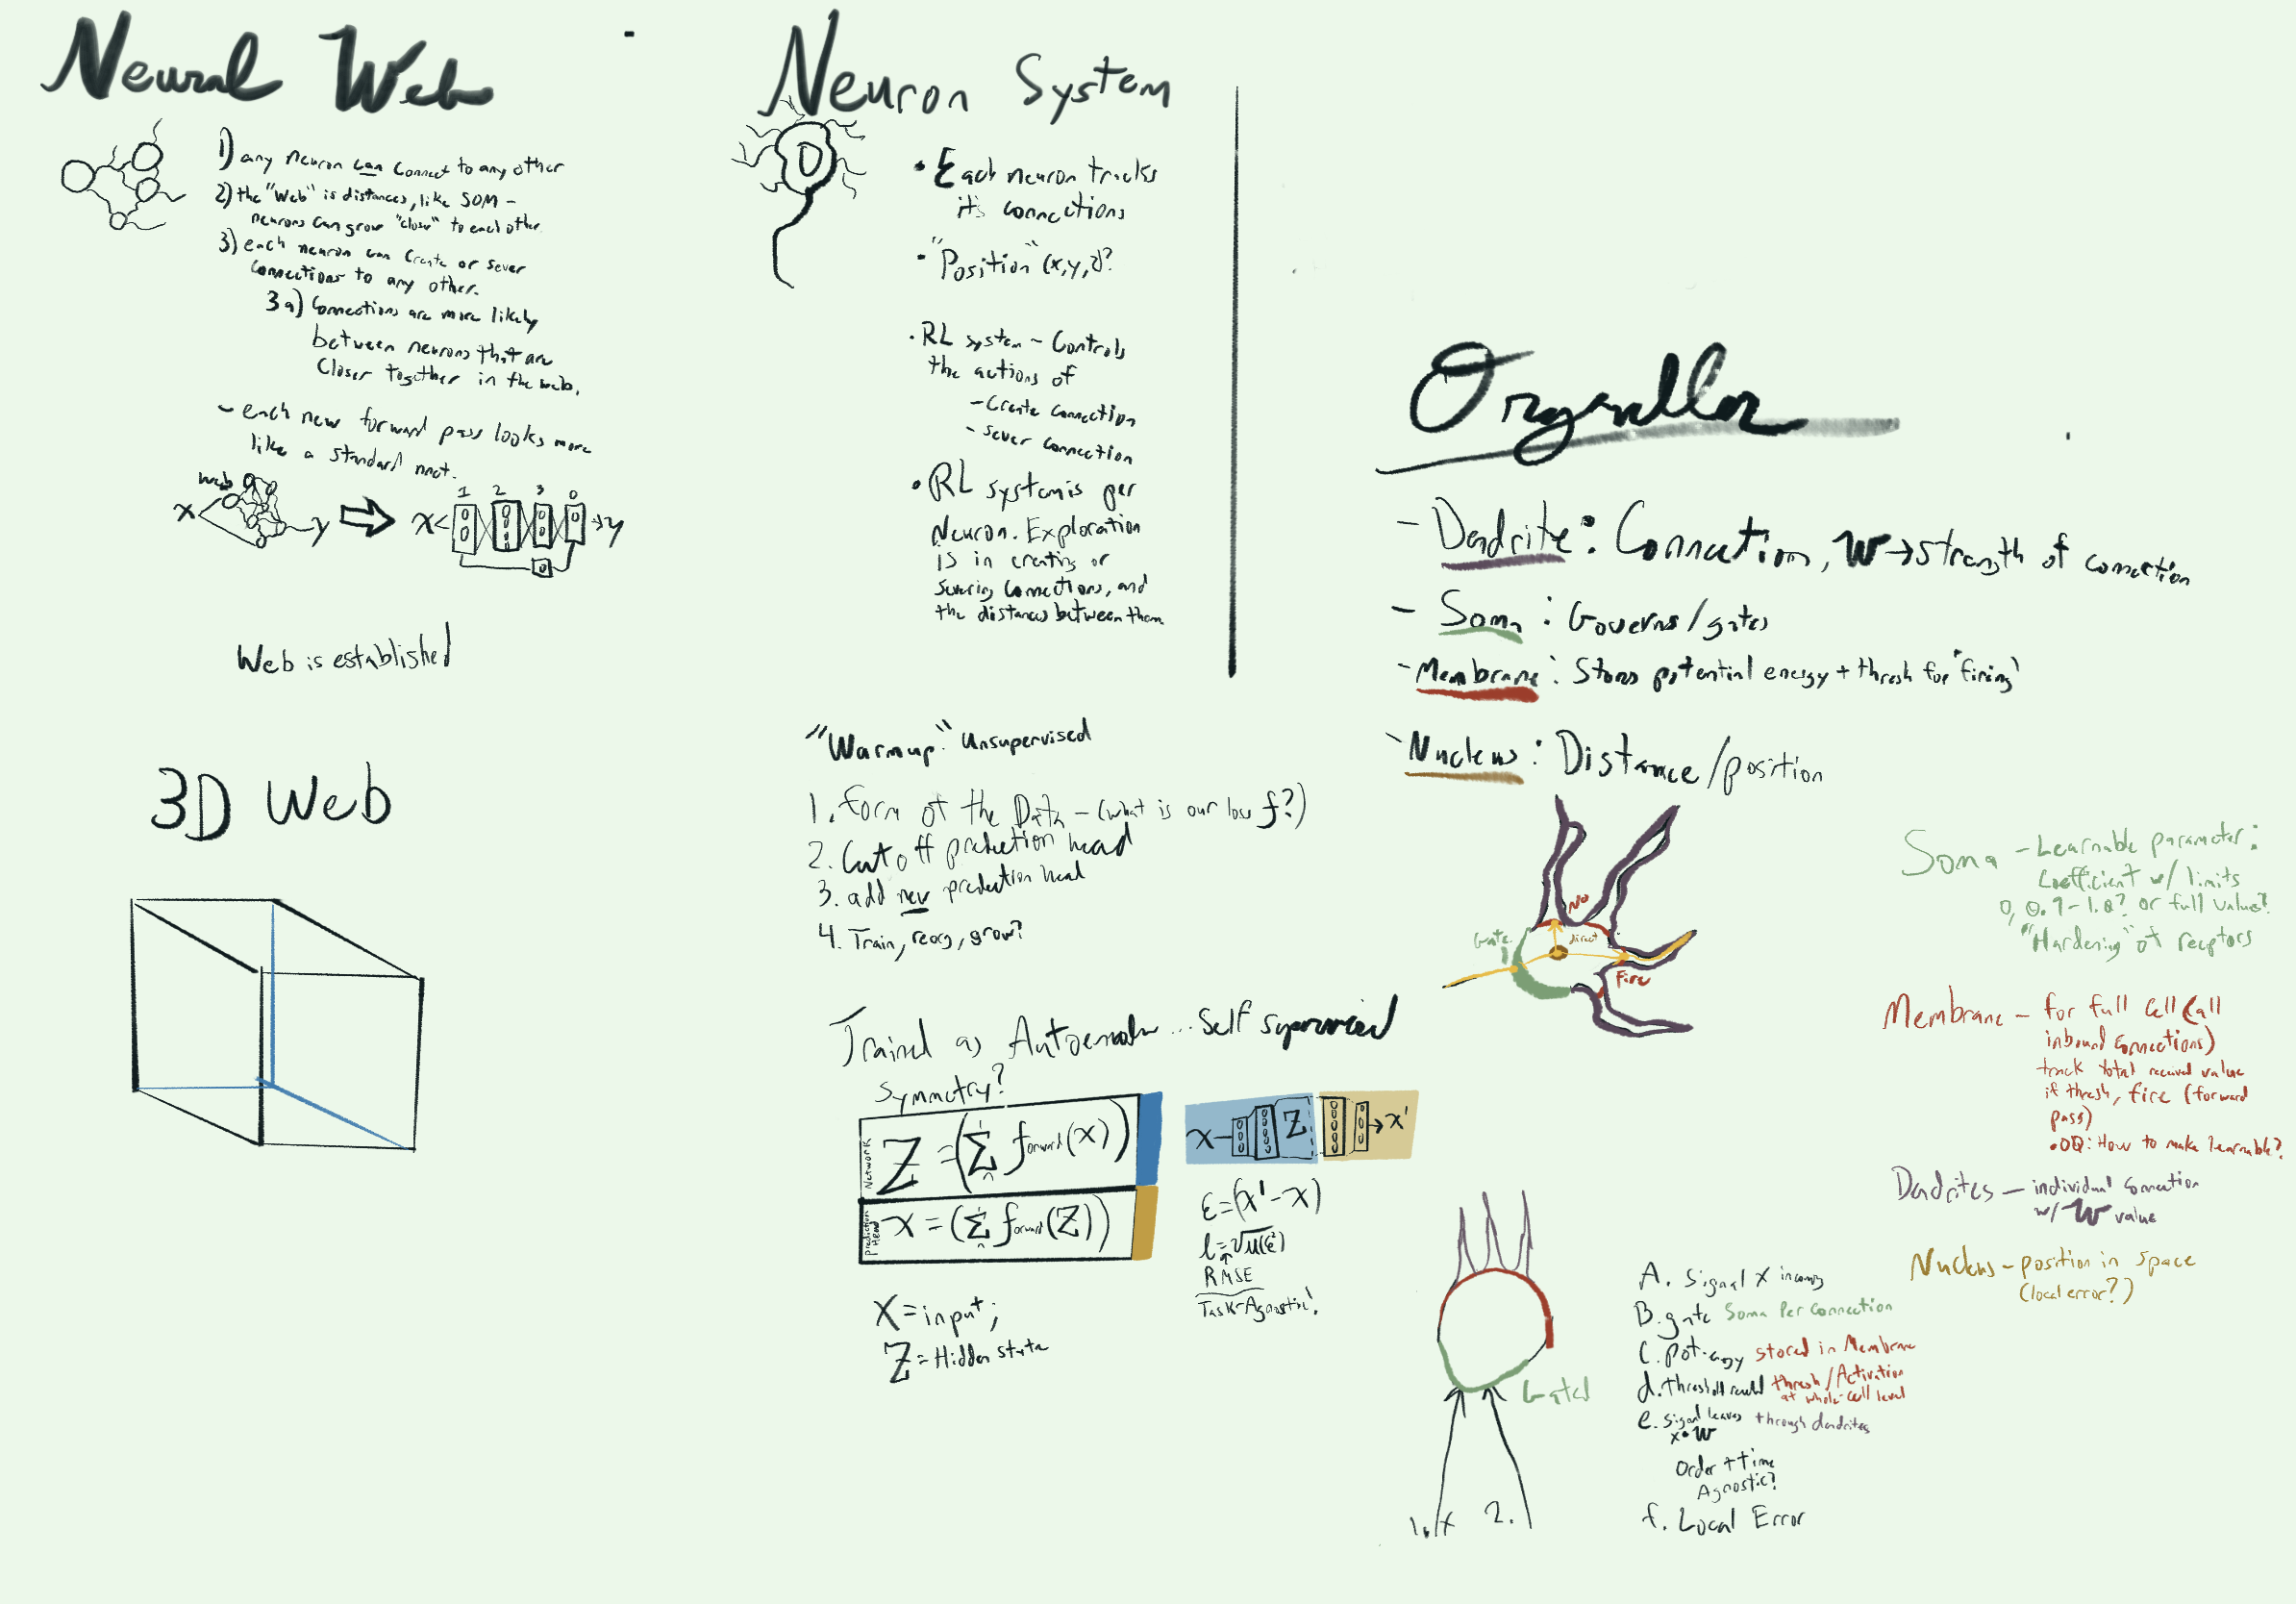 Neural Web
1) any neuron can connect to any other
2) the "Web" is distances, like SOM -
neurons can grow "close" to each other.
3) each neuron can create or sever
connections to any other.
3a) Connections are more likely
between neurons that are
closer together in the web.
- each new forward pass looks more
like a standard nnet.
web
X
y
1 2 3 0
X
y
Web is established
3D Web
Neuron System
• Each neuron tracks
its connections
• "Position" (x,y,z)?
• RL system - Controls
the actions of
- Create connection
- sever connection
• RL system is per
Neuron. Exploration
is in creating or
severing connections, and
the distances between them
"Warmup" Unsupervised
1. Form of the Data - (what is our loss f?)
2. Cut off prediction head
3. add new prediction head
4. Train, reorg, grow?
Trained as Autoencoder ... Self supervised
Symmetry?
Network
Z = (Σ forward (X))
n
Prediction Head
X = (Σ forward (Z))
n
X = input;
Z = Hidden state
X Z X'
ε = (X' - X)
l = √μ(ε²)
RMSE
Task-Agnostic!
Organelles
- Dendrite: Connection, W → strength of connection
- Soma: Governs/gates
- Membrane: Stores potential energy + thresh for "firing"
- Nucleus: Distance/position
No
Gate
direct
Fire
Soma - Learnable parameter:
Coefficient w/ limits
0, 0.9 - 1.0? or full value?
"Hardening" of receptors
Membrane - for full cell (all
inbound connections)
track total received value
if thresh, fire (forward
pass)
• OQ: How to make learnable?
Dendrites - individual connection
w/ W value
Nucleus - position in space
(local error?)
Gated
1. X 2.
A. Signal X incoming
B. gate Soma Per Connection
C. pot. energy stored in Membrane
d. threshold reached thresh/Activation
at whole-cell level
e. signal leaves through dendrites
x • W
Order + time
Agnostic?
f. Local Error